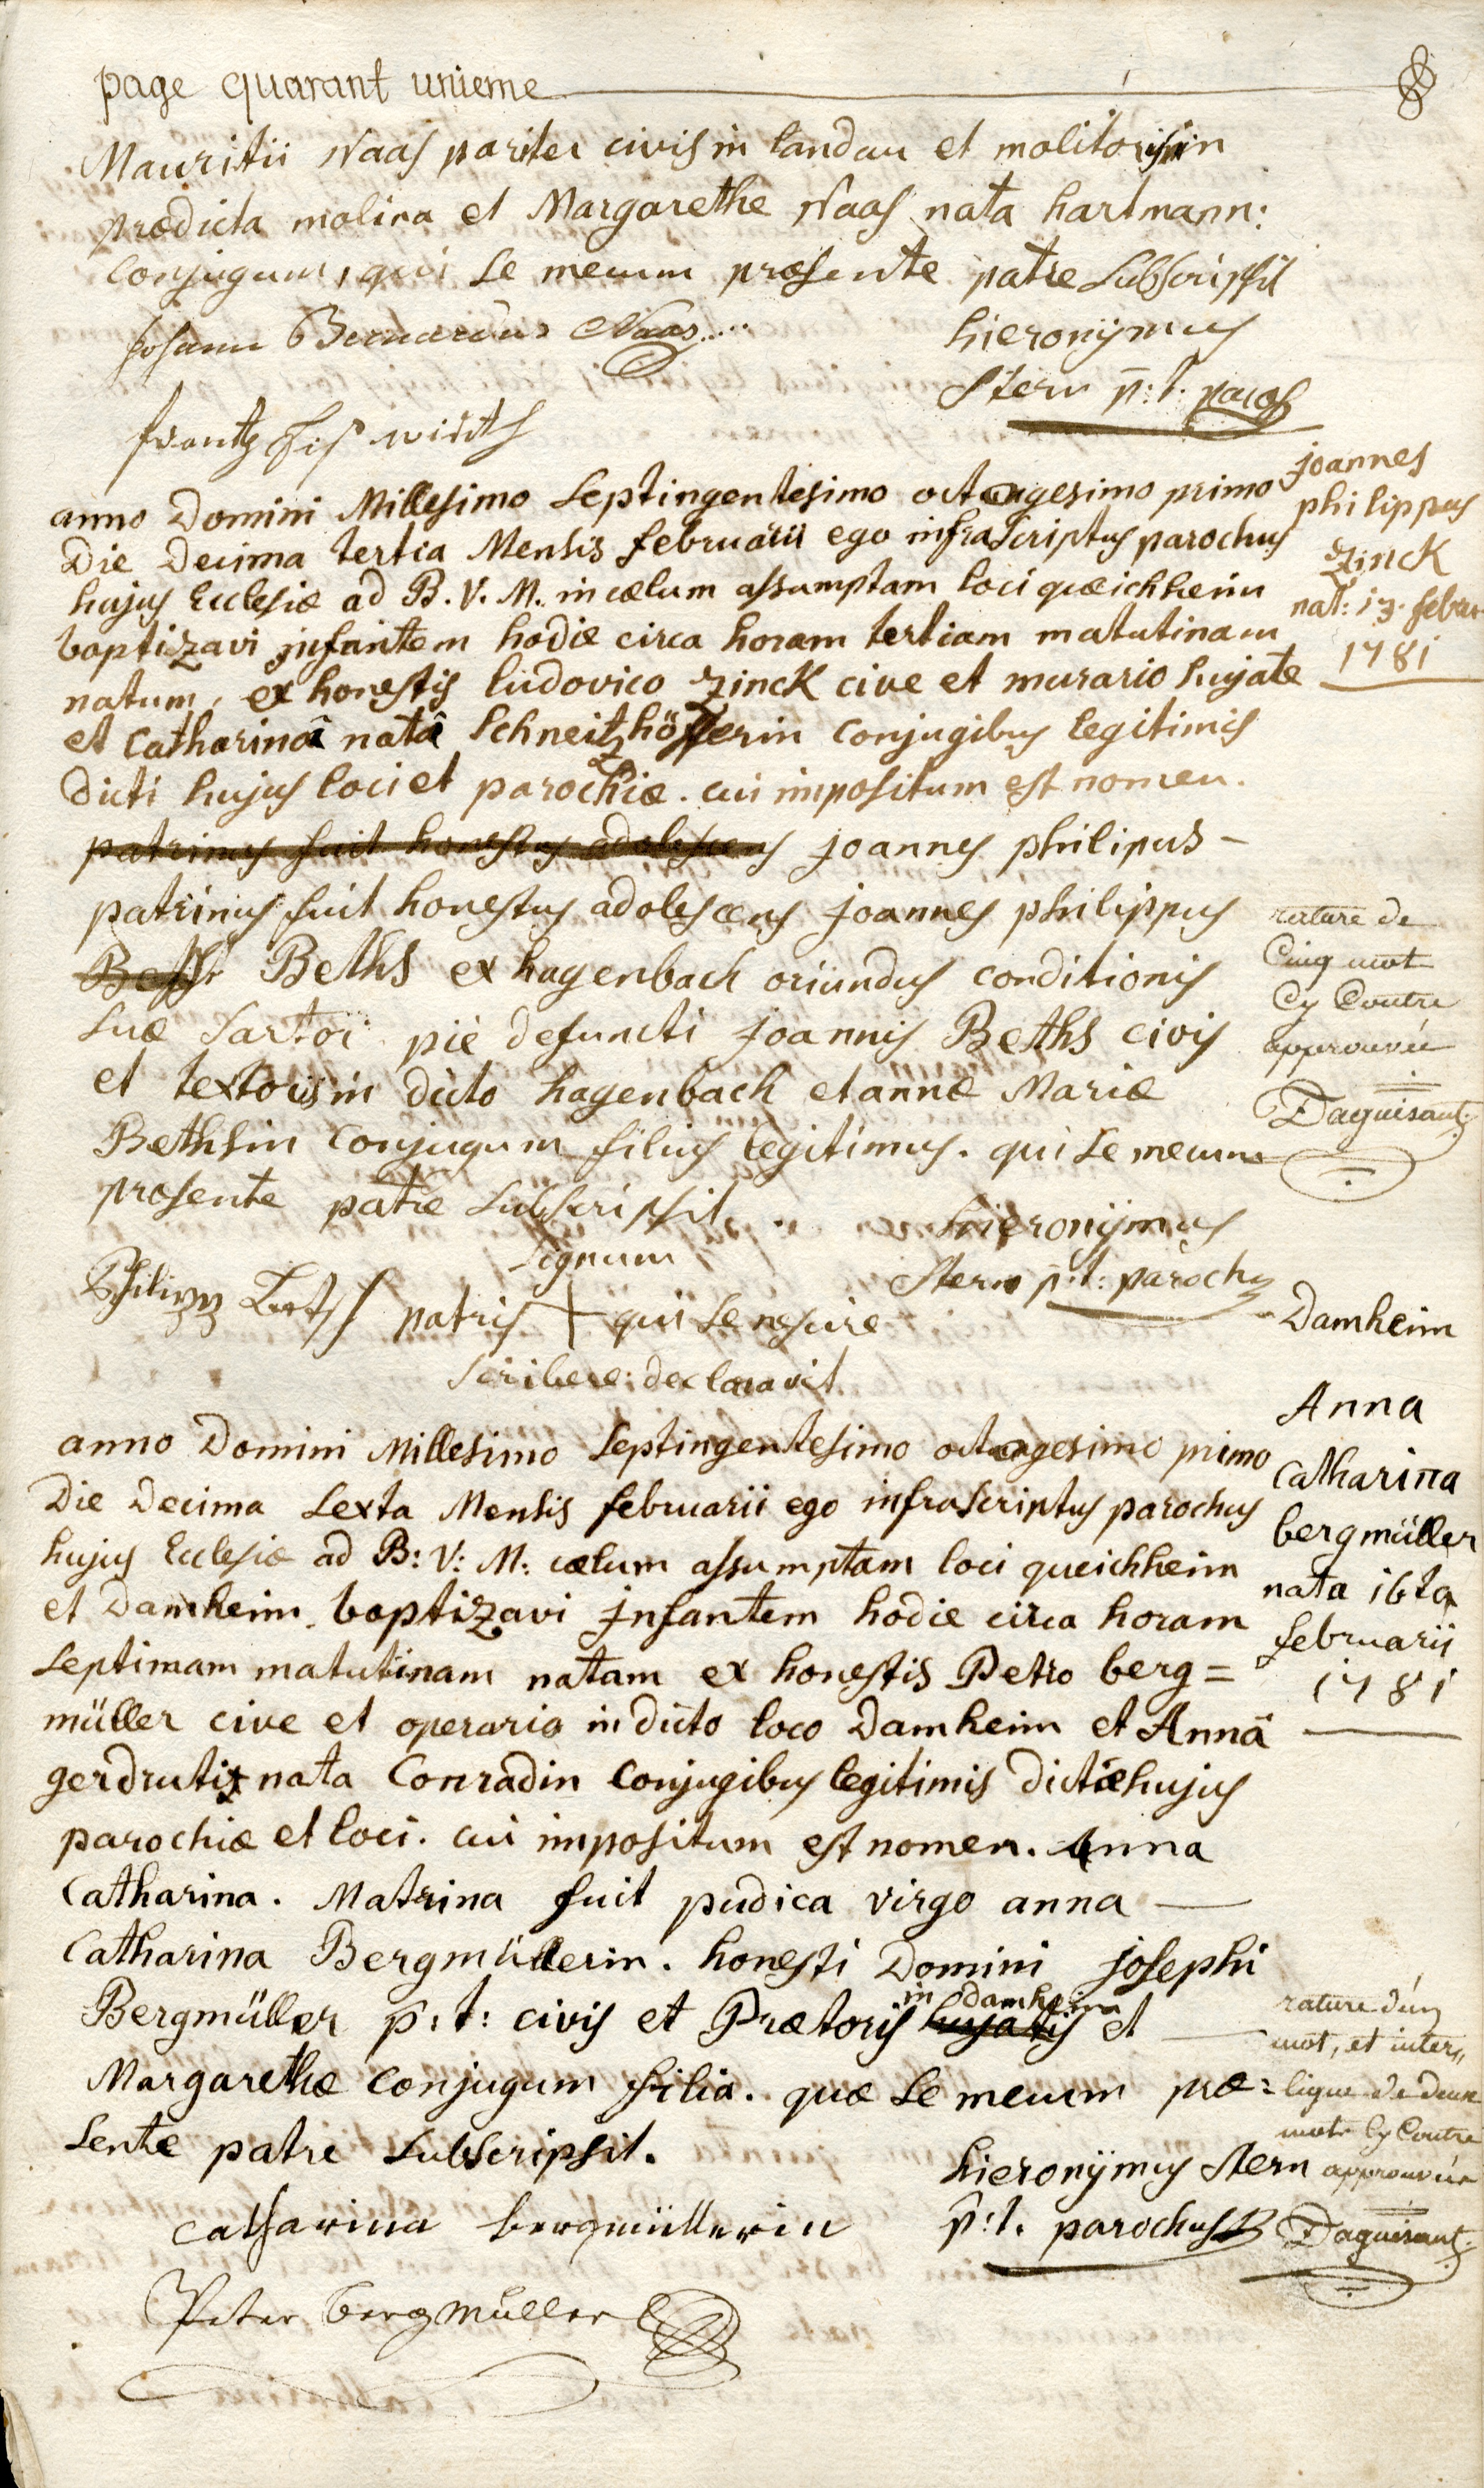 page quarant unieme
Mauritii Naas pariter civis in landau et molitoris in
prædicta molina et Margarethe Naas nata hartmann:
conjugum, qui se mecum præsente patre subscripsit
Johann Bernardus Naas....
hieronÿmus
Stern p: t. paroch
frantz wirth
joannes
philippus
Zinck
nat: 13. febru
1781
anno Domini Millesimo Septingentesimo octuagesimo primo
Die Decima tertia Mensis februarii ego infrascriptus parochus
hujus Ecclesiæ ad B. V. M. in cælum assumptam loci quëichheim
baptizavi infantem hodie circa horam tertiam matutinam
natum, ex honestis ludovico Zinck cive et murario hujate
et Catharinâ natâ Schneitzhöfferin conjugibus legitimis
dicti hujus loci et parochiæ. cui impositum est nomen.
patrinus fuit honestus adolescens joannes philipus -
patrinus fuit honestus adolescens joannes philippus
Beths ex hagenbach oriundus conditionis
suæ Sartor pie defuncti joannis Beths civis
et textoris in dicto hagenbach et annæ Mariæ
Bethsin conjugum filius legitimus. qui se mecum
præsente patre subscripsit
rature de
Cinq mot
Cy Contre
approuvée
Daguisant
hieronÿmus
Stern p: t: parochus
Signum
Philipp patris + qui se nescire
scribere declaravit
Damheim
Anna
Catharina
bergmüller
nata 16ta
februarii
1781
anno Domini Millesimo Septingentesimo octuagesimo primo
Die Decima sexta Mensis februarii ego infrascriptus parochus
hujus Ecclesiæ ad B: V: M: cælum assumptam loci queichheim
et Damheim baptizavi infantem hodie circa horam
septimam matutinam natam ex honestis Petro berg=
müller cive et operario in dicto loco Damheim et Annâ
gerdrutis nata Conradin conjugibus legitimis dictæ hujus
parochiæ et loci. cui impositum est nomen. Anna
Catharina. Matrina fuit pudica virgo anna —
Catharina Bergmüllerin. honesti Domini josephi
in damheim
Bergmüller p: t: civis et Prætoris hujatis et —
Margarethæ conjugum filia. quæ se mecum præ=
sente patre subscripsit.
rature d'un
mot, et inter,,
ligne de deux
mots Cy Contre
approuvée
Daguisant
hieronÿmus Stern
p: t. parochus
Catharina bergmüllerin
Peter bergmüller